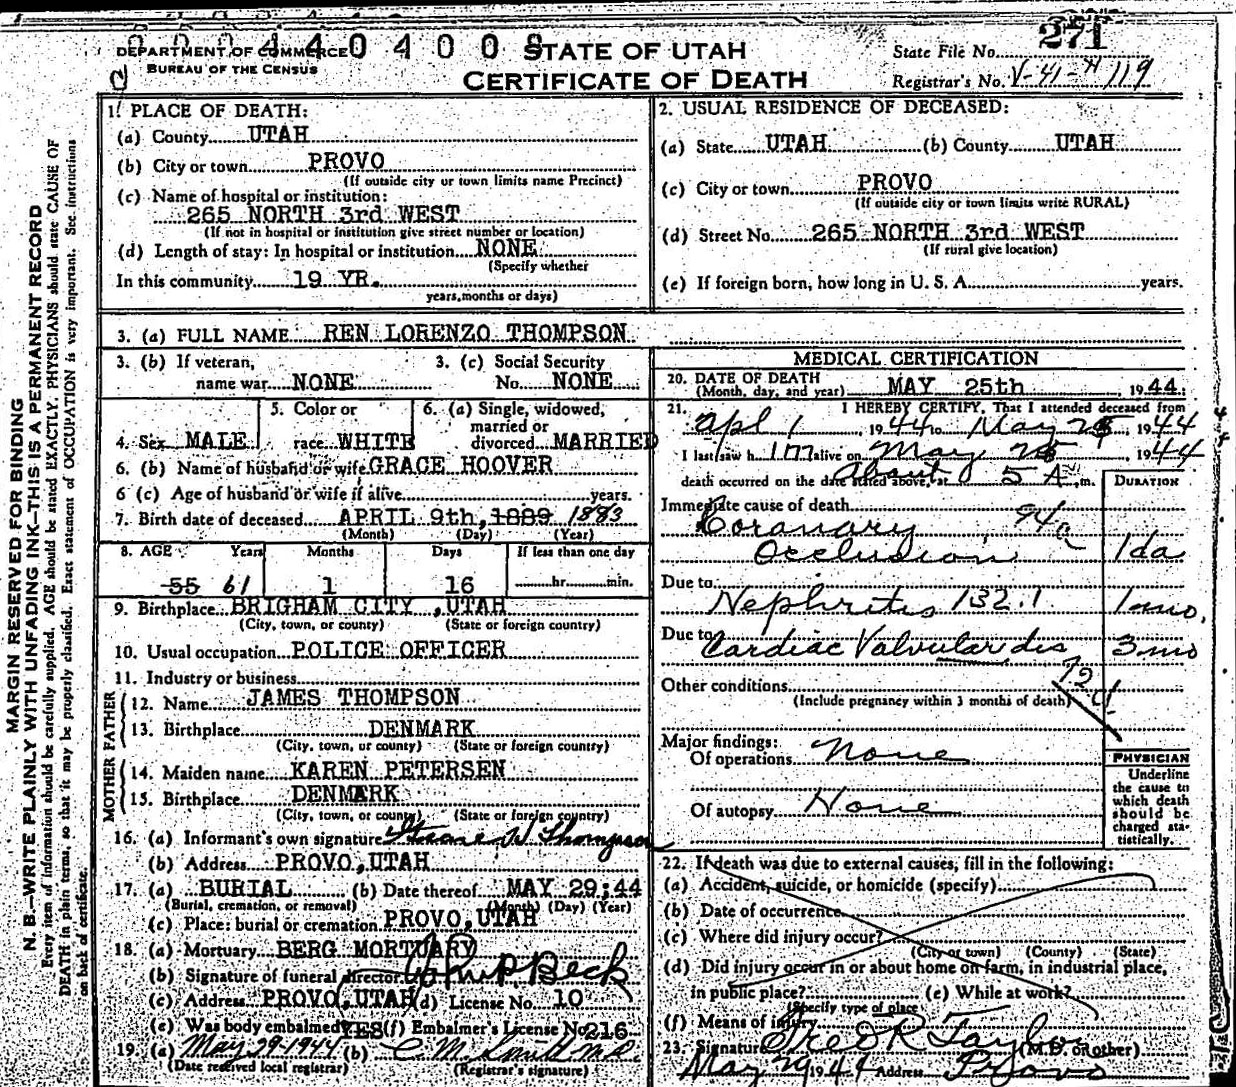 DEPARTMENT OF COMMERCE
BUREAU OF THE CENSUS
STATE OF UTAH
CERTIFICATE OF DEATH
State File No. 271
Registrar's No. V-41-H 119
MARGIN RESERVED FOR BINDING
N. B.—WRITE PLAINLY WITH UNFADING INK—THIS IS A PERMANENT RECORD
Every item of information should be carefully supplied. AGE should be stated EXACTLY. PHYSICIANS should state CAUSE OF
DEATH in plain terms, so that it may be properly classified. Exact statement of OCCUPATION is very important. See instructions
on back of certificate.
1. PLACE OF DEATH:
(a) County UTAH
(b) City or town PROVO
(If outside city or town limits name Precinct)
(c) Name of hospital or institution:
265 NORTH 3rd WEST
(If not in hospital or institution give street number or location)
(d) Length of stay: In hospital or institution NONE
(Specify whether
In this community 19 YR.
years, months or days)
2. USUAL RESIDENCE OF DECEASED:
(a) State UTAH (b) County UTAH
(c) City or town PROVO
(If outside city or town limits write RURAL)
(d) Street No. 265 NORTH 3rd WEST
(If rural give location)
(e) If foreign born, how long in U. S. A. years.
3. (a) FULL NAME REN LORENZO THOMPSON
3. (b) If veteran, name war NONE
3. (c) Social Security No. NONE
4. Sex MALE
5. Color or race WHITE
6. (a) Single, widowed, married or divorced MARRIED
6. (b) Name of husband or wife GRACE HOOVER
6 (c) Age of husband or wife if alive years.
7. Birth date of deceased APRIL 9th, 1889 1883
(Month) (Day) (Year)
8. AGE Years Months Days If less than one day
55 61 1 16 hr. min.
9. Birthplace BRIGHAM CITY, UTAH
(City, town, or county) (State or foreign country)
10. Usual occupation POLICE OFFICER
11. Industry or business
FATHER
12. Name JAMES THOMPSON
13. Birthplace DENMARK
(City, town, or county) (State or foreign country)
MOTHER
14. Maiden name KAREN PETERSEN
15. Birthplace DENMARK
(City, town, or county) (State or foreign country)
16. (a) Informant's own signature W Thompson
(b) Address PROVO, UTAH
17. (a) BURIAL (b) Date thereof MAY 29:44
(Burial, cremation, or removal) (Month) (Day) (Year)
(c) Place: burial or cremation PROVO, UTAH
18. (a) Mortuary BERG MORTUARY
(b) Signature of funeral director Beck
(c) Address PROVO, UTAH (d) License No. 10
(e) Was body embalmed YES (f) Embalmer's License No. 216
19. (a) May 29-1944 (b) C M
(Date received local registrar) (Registrar's signature)
MEDICAL CERTIFICATION
20. DATE OF DEATH
(Month, day, and year) MAY 25th 1944.
21. I HEREBY CERTIFY, That I attended deceased from
Apl 1, 1944 to May 25, 1944
I last saw him alive on May 25, 1944
death occurred on the date stated above, at About 5 A. m.
DURATION
Immediate cause of death 94a
Coronary
Occlusion 1 da
Due to
Nephritis 132.1 1 mo.
Due to
Cardiac Valvular dis 3 mo
Other conditions
(Include pregnancy within 3 months of death)
Major findings:
Of operations None
Of autopsy None
PHYSICIAN
Underline
the cause to
which death
should be
charged sta-
tistically.
22. If death was due to external causes, fill in the following:
(a) Accident, suicide, or homicide (specify)
(b) Date of occurrence
(c) Where did injury occur?
(City or town) (County) (State)
(d) Did injury occur in or about home on farm, in industrial place,
in public place? (e) While at work?
(Specify type of place)
(f) Means of injury
23. Signature Fred R Taylor (M.D. or other)
May 29 1944 Address Provo